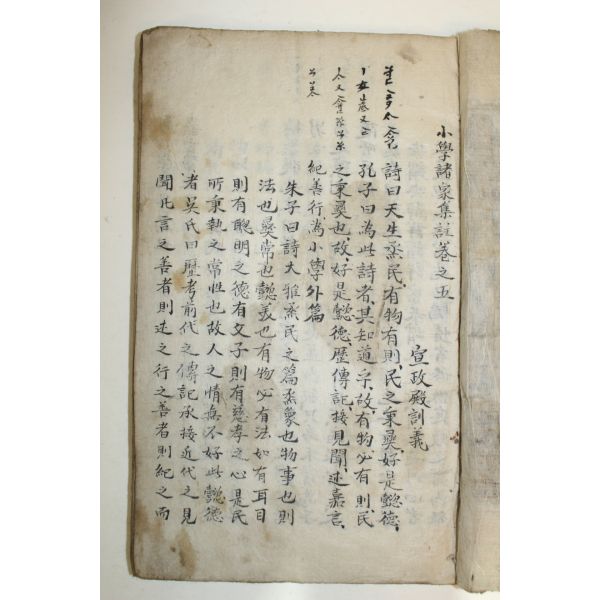 小學諸家集註卷之五
宣政殿訓義
詩曰天生烝民有物有則民之秉彝好是懿德
孔子曰為此詩者其知道乎故有物必有則民
之秉彝也故好是懿德歷傳記接見聞述嘉言
紀善行為小學外篇
朱子曰詩大雅烝民之篇烝衆也物事也則
法也彝常也懿美也有物必有法如有耳目
則有聰明之德有父子則有慈孝之心是民
所秉執之常性也故人之情無不好此懿德
者吳氏曰歷考前代之傳記承接近代之見
聞凡言之善者則述之行之善者則紀之而